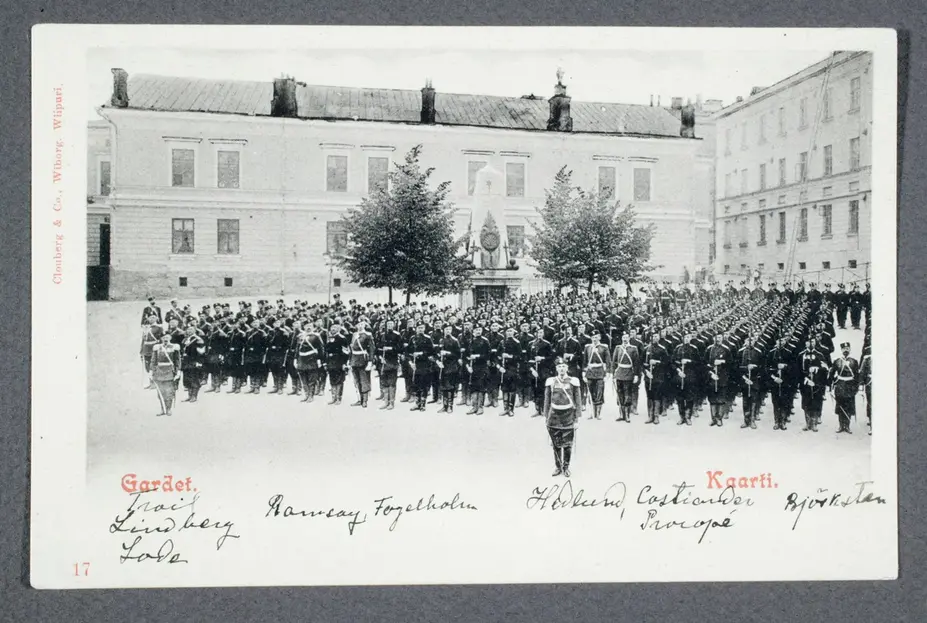 Clouberg & Co., Wiborg. Wiipuri.
Gardet.
Kaarti.
Trail
Lindberg
Lode
Ramsay, Fogelholm
Hedlund, Castrander
Procopé
Björksten
17